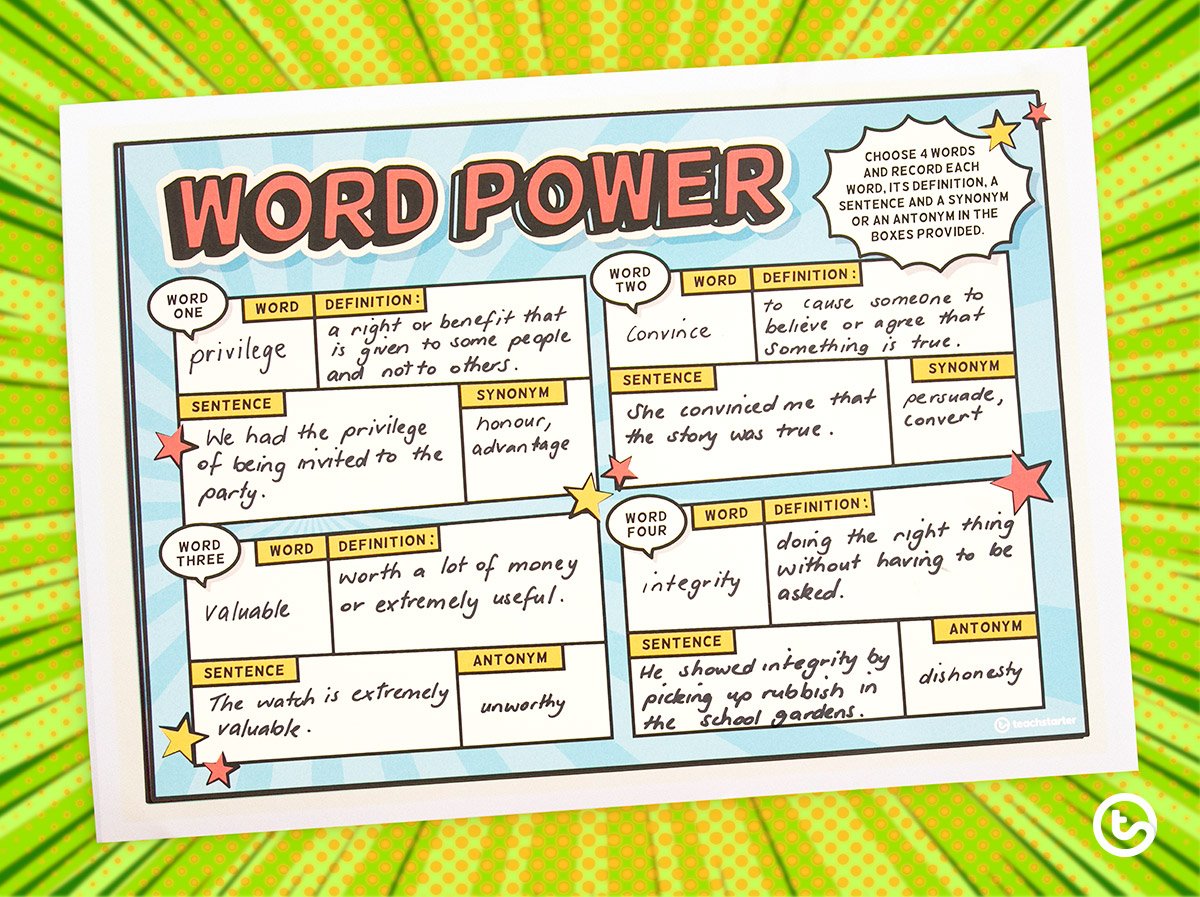 WORD POWER
CHOOSE 4 WORDS
AND RECORD EACH
WORD, ITS DEFINITION, A
SENTENCE AND A SYNONYM
OR AN ANTONYM IN THE
BOXES PROVIDED.
WORD
ONE
WORD
privilege
DEFINITION:
a right or benefit that
is given to some people
and not to others.
SENTENCE
We had the privilege
of being invited to the
party.
SYNONYM
honour,
advantage
WORD
TWO
WORD
Convince
DEFINITION:
to cause someone to
believe or agree that
something is true.
SENTENCE
She convinced me that
the story was true.
SYNONYM
persuade,
convert
WORD
THREE
WORD
valuable
DEFINITION:
worth a lot of money
or extremely useful.
SENTENCE
The watch is extremely
valuable.
ANTONYM
unworthy
WORD
FOUR
WORD
integrity
DEFINITION:
doing the right thing
without having to be
asked.
SENTENCE
He showed integrity by
picking up rubbish in
the school gardens.
ANTONYM
dishonesty
teachstarter